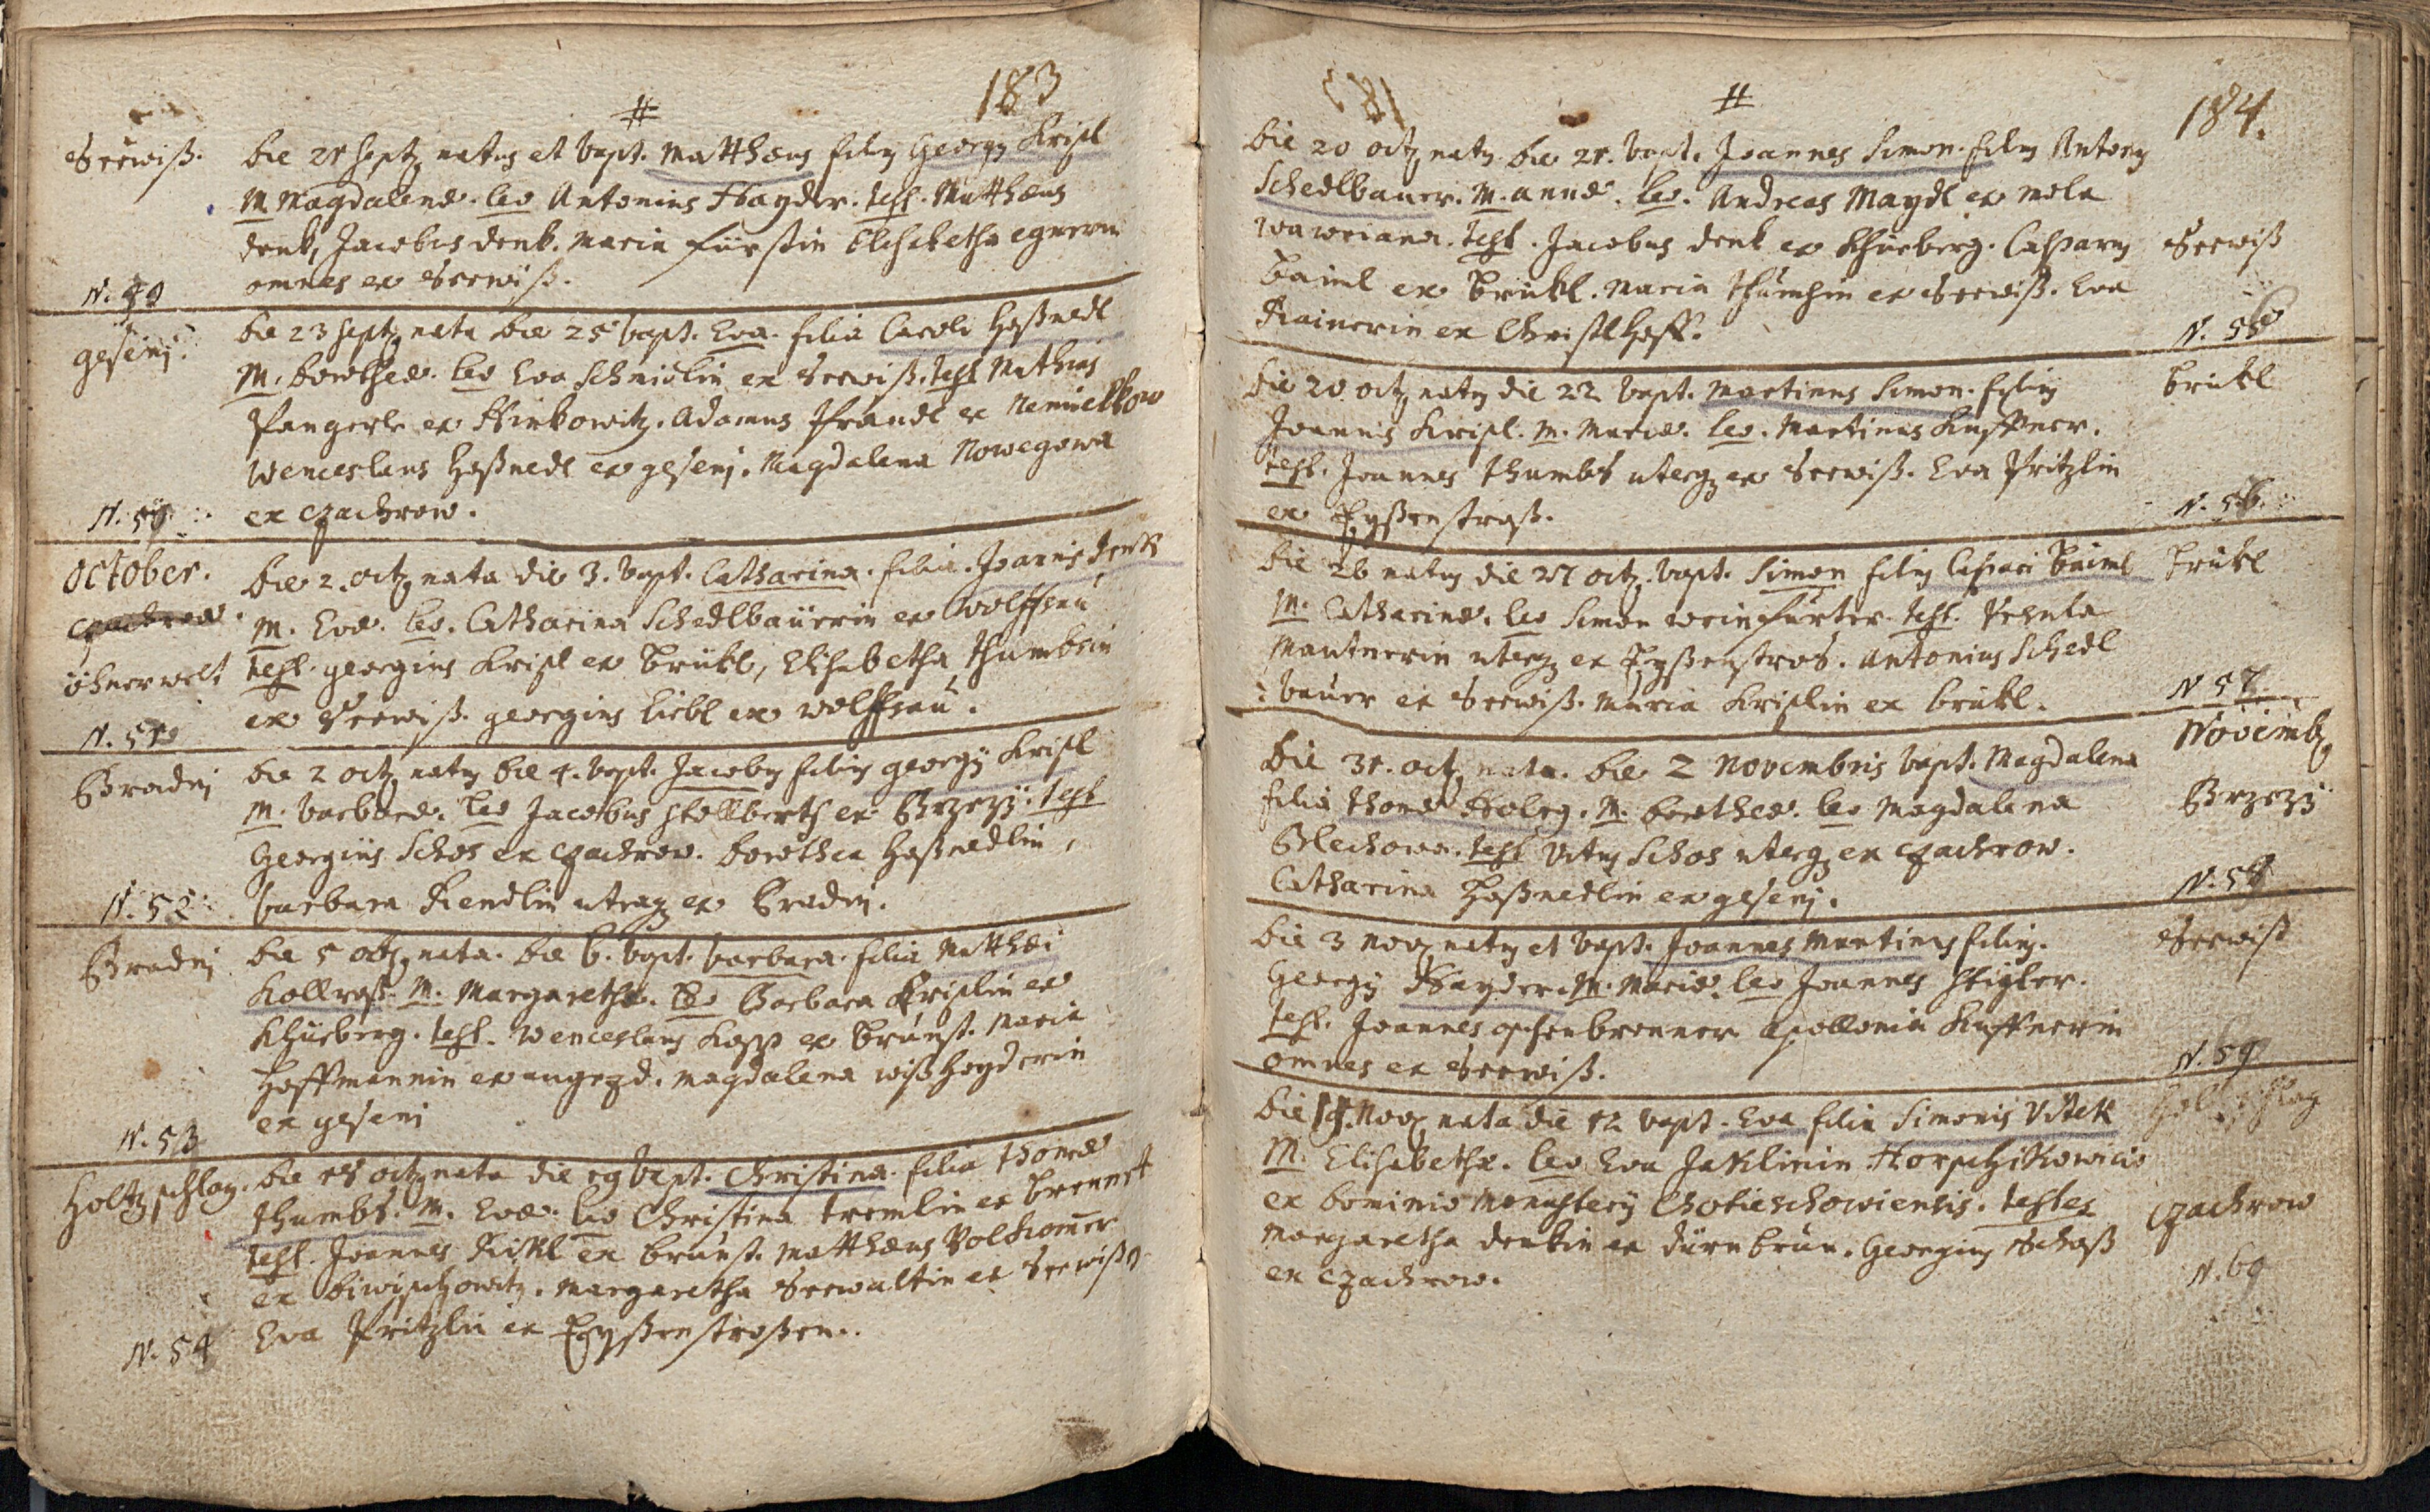 183
#
Seewiß.
die 21 septz natus et bapt. Matthæus filiy Georgy Kripl
M Magdalenæ. leo Antonius Hayder. test. Matthæus
denk, Jacobus denk. Maria Fürstin Elisabetha
omnes ex Seewiß.
N. 49
Gesenj.
die 23 septz nata die 25 bapt. Eva. filia Caroli Hoßnedl
M. dorotheæ. leo Eva Schmidin ex Seewiß. test Mathias
Pangerle ex Hinkowitz. Adamus Prandl ex Nemielkow
Wenceslaus Hoßnedl ex gesenj. Magdalena Nowegowa
ex czachrow.
N. 50
October.
czachrow.
öhnerwelt
die 2. octz nata die 3. bapt. Catharina. filia. Joannis denk
M. Evæ. leo. Catharina Schedlbaürrin ex Wolffsau
test. georgius Kripl ex Brükl, Elisabetha Thumbsin
ex Seewiß. georgius Liebl ex wolffsau.
N. 51
Bradnj
die 2 octz naty die 4. bapt. Jacoby filiy georgy Kripl
M. barbaræ. leo Jacobus Hollberth ex Brzezÿ. test
Georgiüs Schos ex czachrow. dorothea Hoßnedlin,
barbara Kiendlin utraqz ex bradnj.
N. 52
Bradnj
die 5 octz nata. die 6. bapt. barbara. filia Matthæi
Kollroß. M. Margarethæ. leo Barbara Kriplin ex
Khueberg. test. Wenceslauy Kopp ex brunst. Maria
Hoffmannin ex angezd. Magdalena wißhoyderin
ex gesenj
N. 53
Holtzschlag.
die 18 octz nata die 19 bapt. Christina. filia thomæ
thumbs. M. Evæ. leo Christina tremlin ex brennet
test. Joannes Kikl ex brunst. Matthæus Volkomer
ex biwischowitz. Margaretha Seewaltin ex Seewiß
Eva Pritzlin ex Eyßenstroßen.
N. 54
#
184.
die 20 octz naty die 21. bapt. Joannes Simon. filiy Antony
Schedlbauer. M. annæ. leo. Andreas Maydl ex mola
wawriana. test. Jacobus denk ex Khueberg. Casparuy
baiml ex Brükl. Maria thümsin ex Seewiß. Eva
Rainerin ex Christlhoff.
Seewiß
N. 55
die 20 octz naty die 22 bapt. Martinus Simon. filiy
Joannis Kripl. M. Mariæ. leo. Martinus Kuffner.
test. Joannes thumbs uterqz ex Seewiß. Eva Pritzlin
ex Eyßenstroß.
brükl
N. 56.
die 26 naty die 27 octz bapt. Simon filiy Caspari baiml
M. Catharinæ. leo Simon weinfürter. test. Vrsula
Mautnerin uterqz ex Eyßenstros. Antonius Schedl
:bauer ex Seewiß. Maria Kriplin ex brükl.
brükl
N 57
Novembz
die 31. octz nata. die 2 Novembris bapt. Magdalena
filia thomæ Holey. M. dorotheæ. leo Magdalena
Blechowa. test Vity Schos uterqz ex czachrow.
Catharina Hoßnedlin ex gesenj.
Brzezÿ
N. 58
die 3 novz naty et bapt. Joannes Martinuy filiy.
Georgy Hayder. M. Mariæ. leo Joannes Stigler.
test. Joannes opschenbrenner Apollonia Kuffnerin
omnes ex Seewiß.
Seewiß
N. 59
die 11. Novz nata die 12 bapt. Eva filia Simonis Vitek
M. Elisabethæ. leo Eva Jaklinin Horschikowicio
ex dominio Monastery Chotieschowiensis. testes
Margaretha denkin ex dürnbrun. Georgiuy Schoß
ex czachrow.
Holtzschlag
czachrow
N. 60